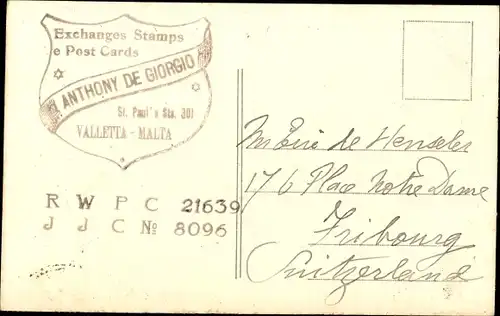 Exchanges Stamps
e Post Cards
ANTHONY DE GIORGIO
St. Paul's Sta. 301
VALLETTA - MALTA
R W P C 21639
J J C № 8096
de Henseler
176 Place Notre Dame
Fribourg
Suitzerland